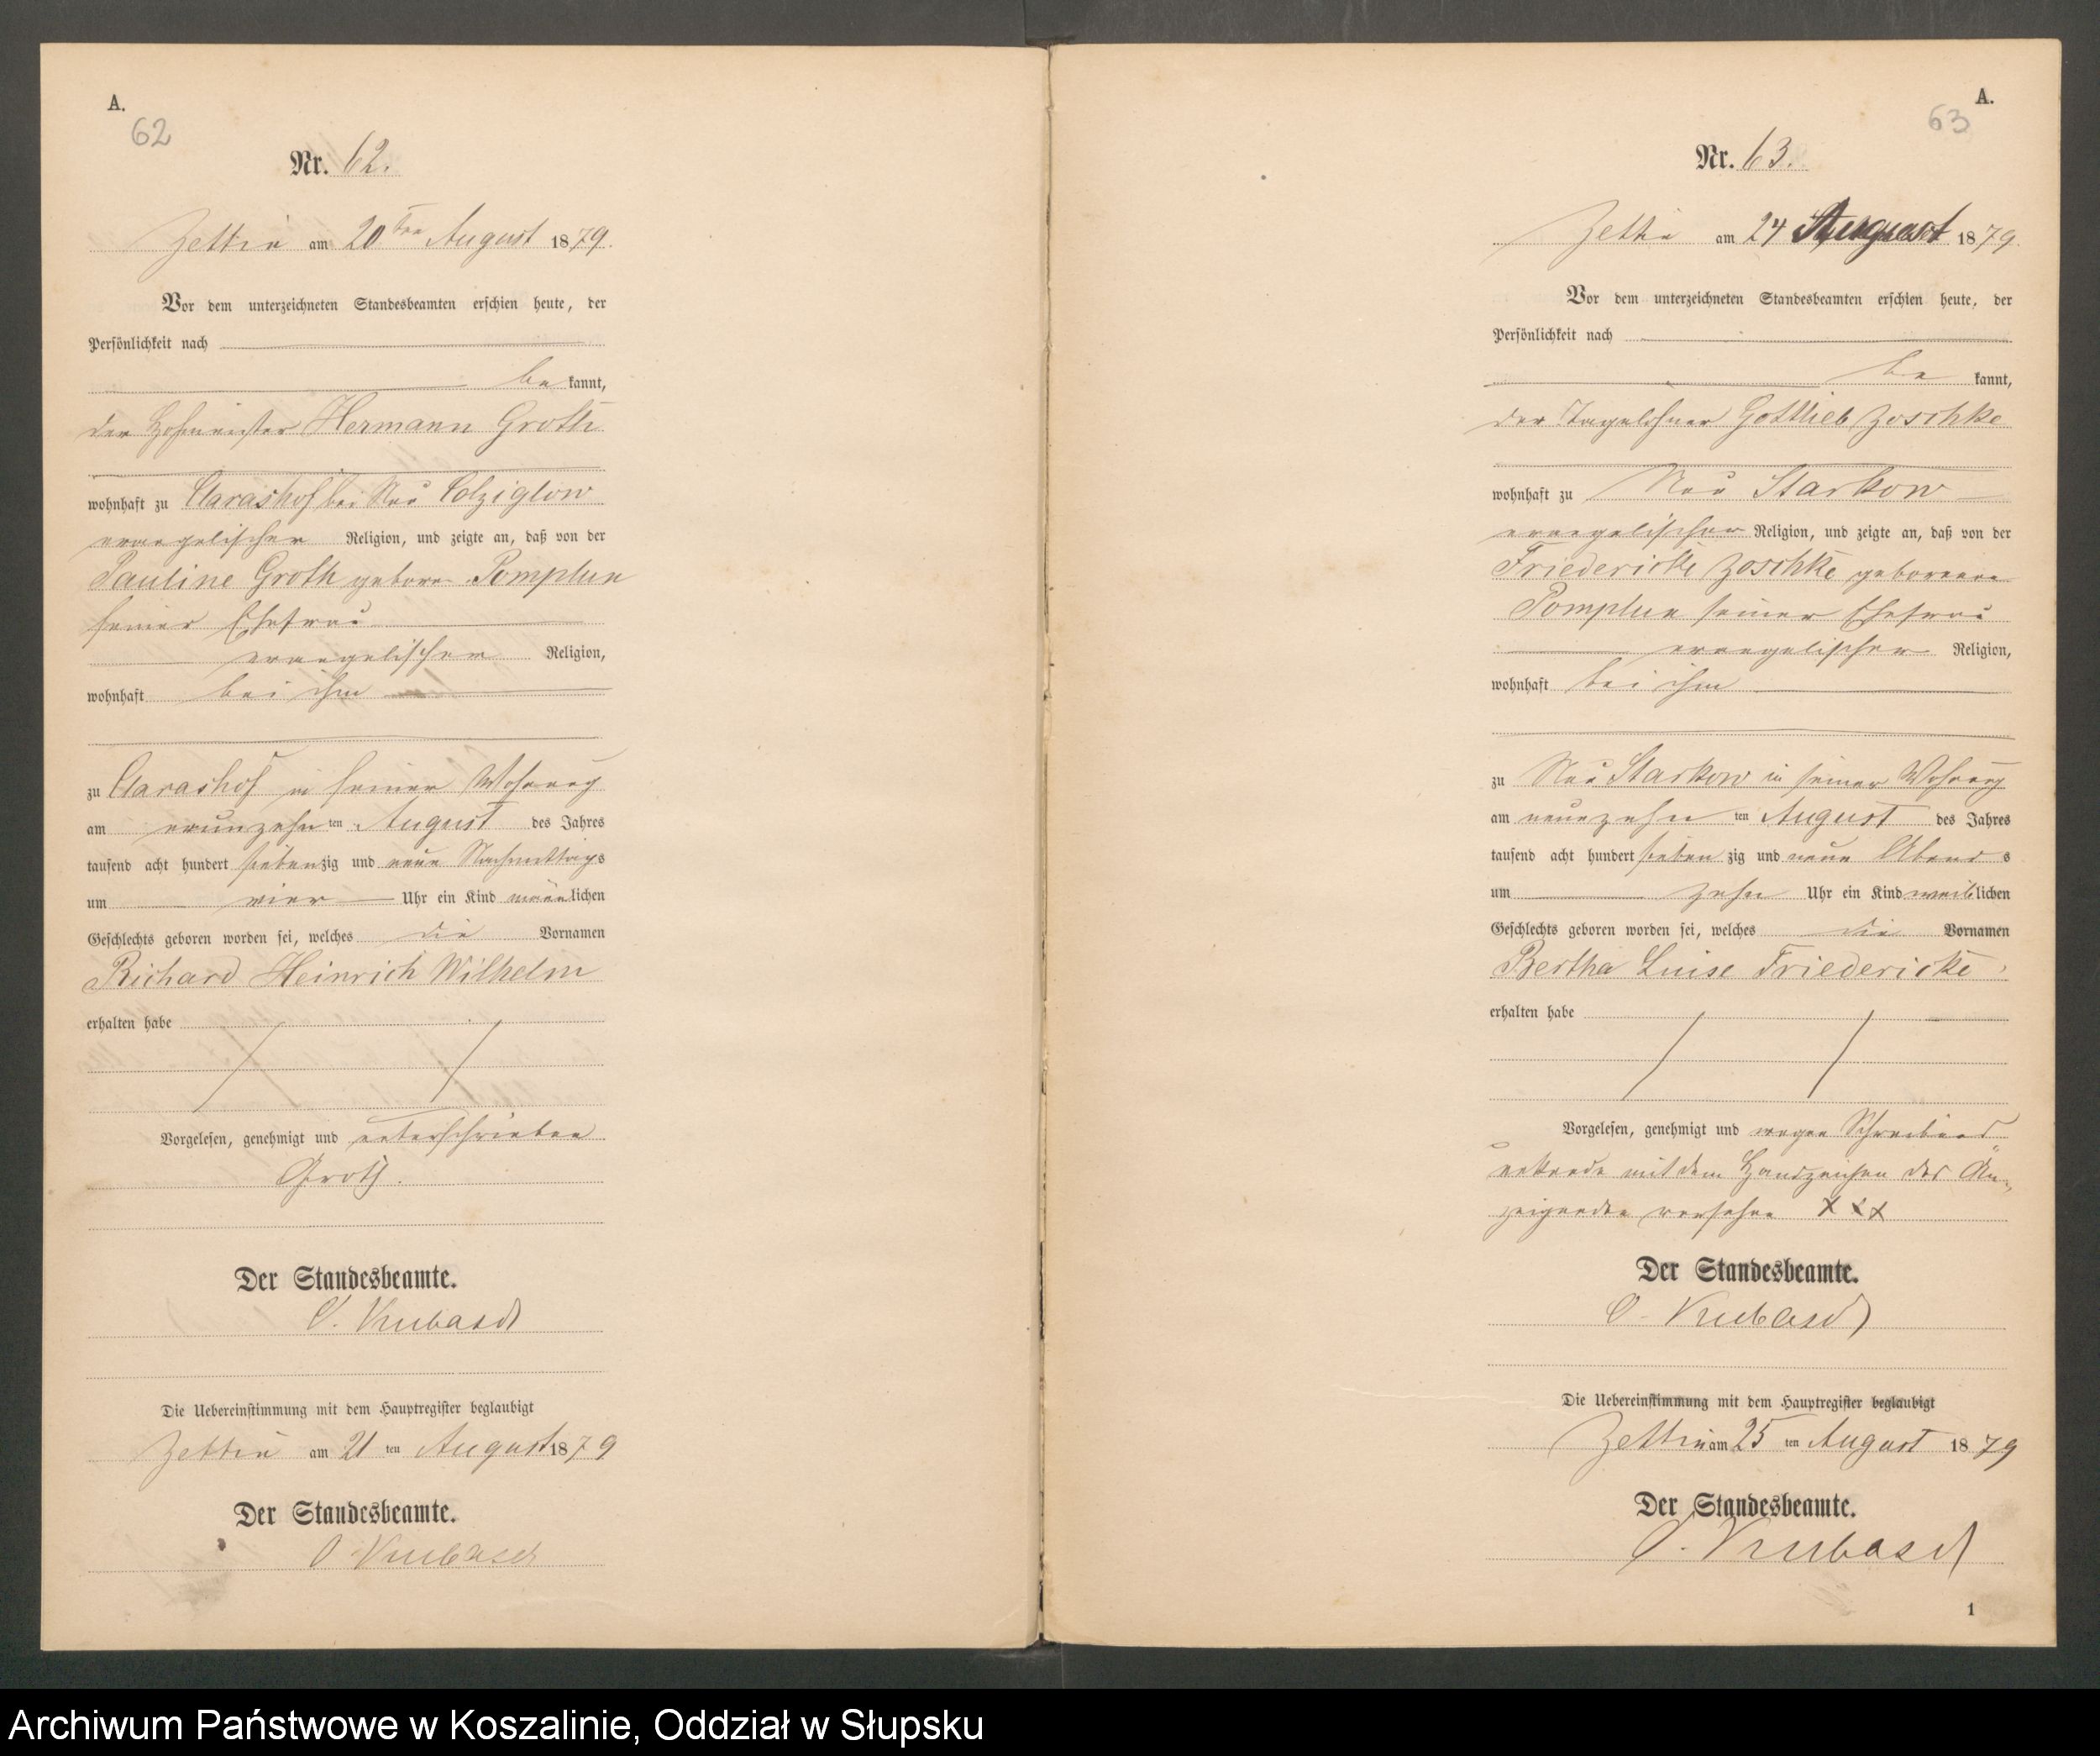 A.
62
Nr. 62.
Zettin am 20ten August 1879.
Vor dem unterzeichneten Standesbeamten erschien heute, der
Persönlichkeit nach
be kannt,
der Hofmeister Hermann Groth
wohnhaft zu Clarashof bei Neu Colziglow
evangelischer Religion, und zeigte an, daß von der
Pauline Groth geborne Pomplun
seiner Ehefrau
evangelischer Religion,
wohnhaft bei ihm
zu Clarashof in seiner Wohnung
am neunzehn ten August des Jahres
tausend acht hundert siebenzig und neun Nachmittags
um vier Uhr ein Kind männlichen
Geschlechts geboren worden sei, welches die Vornamen
Richard Heinrich Wilhelm
erhalten habe
Vorgelesen, genehmigt und unterschrieben
Groth.
Der Standesbeamte.
O. Kubasch
Die Uebereinstimmung mit dem Hauptregister beglaubigt
Zettin am 21 ten August 1879
Der Standesbeamte.
O Kubasch
A.
63
Nr. 63.
Zettin am 24 August 1879.
Vor dem unterzeichneten Standesbeamten erschien heute, der
Persönlichkeit nach
be kannt,
der Tagelöhner Gottlieb Zoschke
wohnhaft zu Neu Starkow
evangelischer Religion, und zeigte an, daß von der
Friedericke Zoschke geborenen
Pomplun seiner Ehefrau
evangelischer Religion,
wohnhaft bei ihm
zu Neu Starkow in seiner Wohnung
am neunzehn ten August des Jahres
tausend acht hundert sieben zig und neun Abend s
um zehn Uhr ein Kind weiblichen
Geschlechts geboren worden sei, welches die Vornamen
Bertha Luise Friedericke
erhalten habe
Vorgelesen, genehmigt und wegen Schreibens
mit dem Handzeichen des An-
zeigenden versehen XXX
Der Standesbeamte.
O. Kubasch
Die Uebereinstimmung mit dem Hauptregister beglaubigt
Zettin am 25 ten August 1879
Der Standesbeamte.
O. Kubasch
1
Archiwum Państwowe w Koszalinie, Oddział w Słupsku